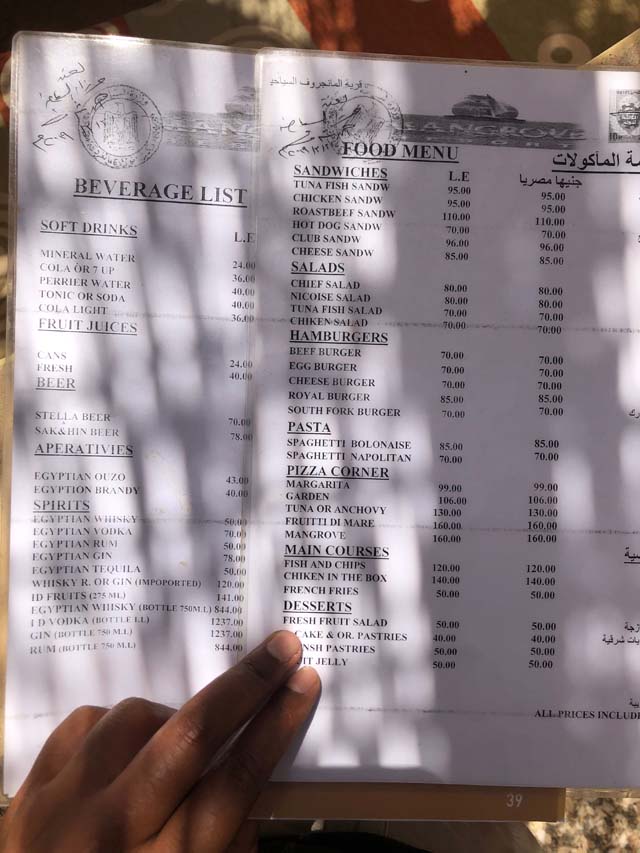 قرية المانجروف السياحي
MANGROVE
BEVERAGE LIST
SOFT DRINKS L.E
MINERAL WATER 24.00
COLA OR 7 UP 36.00
PERRIER WATER 40.00
TONIC OR SODA 40.00
COLA LIGHT 36.00
FRUIT JUICES
CANS 24.00
FRESH 40.00
BEER
STELLA BEER 70.00
SAK&HIN BEER 78.00
APERATIVIES
EGYPTIAN OUZO 43.00
EGYPTION BRANDY 40.00
SPIRITS
EGYPTIAN WHISKY 50.00
EGYPTIAN VODKA 70.00
EGYPTIAN RUM 50.00
EGYPTIAN GIN 78.00
EGYPTIAN TEQUILA 50.00
WHISKY R. OR GIN (IMPOPORTED) 120.00
ID FRUITS (275 ML) 141.00
EGYPTIAN WHISKY (BOTTLE 750M.L) 844.00
I D VODKA (BOTTLE I.L) 1237.00
GIN (BOTTLE 750 M.L) 1237.00
RUM (BOTTLE 750 M.L) 844.00
FOOD MENU المأكولات
SANDWICHES L.E جنيها مصريا
TUNA FISH SANDW 95.00 95.00
CHICKEN SANDW 95.00 95.00
ROASTBEEF SANDW 110.00 110.00
HOT DOG SANDW 70.00 70.00
CLUB SANDW 96.00 96.00
CHEESE SANDW 85.00 85.00
SALADS
CHIEF SALAD 80.00 80.00
NICOISE SALAD 80.00 80.00
TUNA FISH SALAD 70.00 70.00
CHIKEN SALAD 70.00 70.00
HAMBURGERS
BEEF BURGER 70.00 70.00
EGG BURGER 70.00 70.00
CHEESE BURGER 70.00 70.00
ROYAL BURGER 85.00 85.00
SOUTH FORK BURGER 70.00 70.00
PASTA
SPAGHETTI BOLONAISE 85.00 85.00
SPAGHETTI NAPOLITAN 70.00 70.00
PIZZA CORNER
MARGARITA 99.00 99.00
GARDEN 106.00 106.00
TUNA OR ANCHOVY 130.00 130.00
FRUITTI DI MARE 160.00 160.00
MANGROVE 160.00 160.00
MAIN COURSES
FISH AND CHIPS 120.00 120.00
CHIKEN IN THE BOX 140.00 140.00
FRENCH FRIES 50.00 50.00
DESSERTS
FRESH FRUIT SALAD 50.00 50.00
CAKE & OR. PASTRIES 40.00 40.00
NSH PASTRIES 50.00 50.00
IT JELLY 50.00 50.00
ALL PRICES INCLUD
39